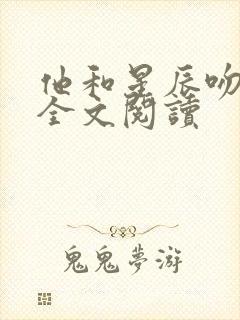 他和星辰吻
全文閱讀
鬼鬼夢游